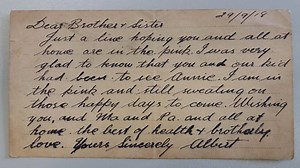 29/9/18
Dear Brother & Sister
Just a line hoping you and all at
home are in the pink. I was very
glad to know that you and our kid
had been to see Annie. I am in
the pink and still sweating on
those happy days to come. Wishing
you, and Ma and Pa. and all at
home the best of health & brotherly
love. Yours Sincerely Albert